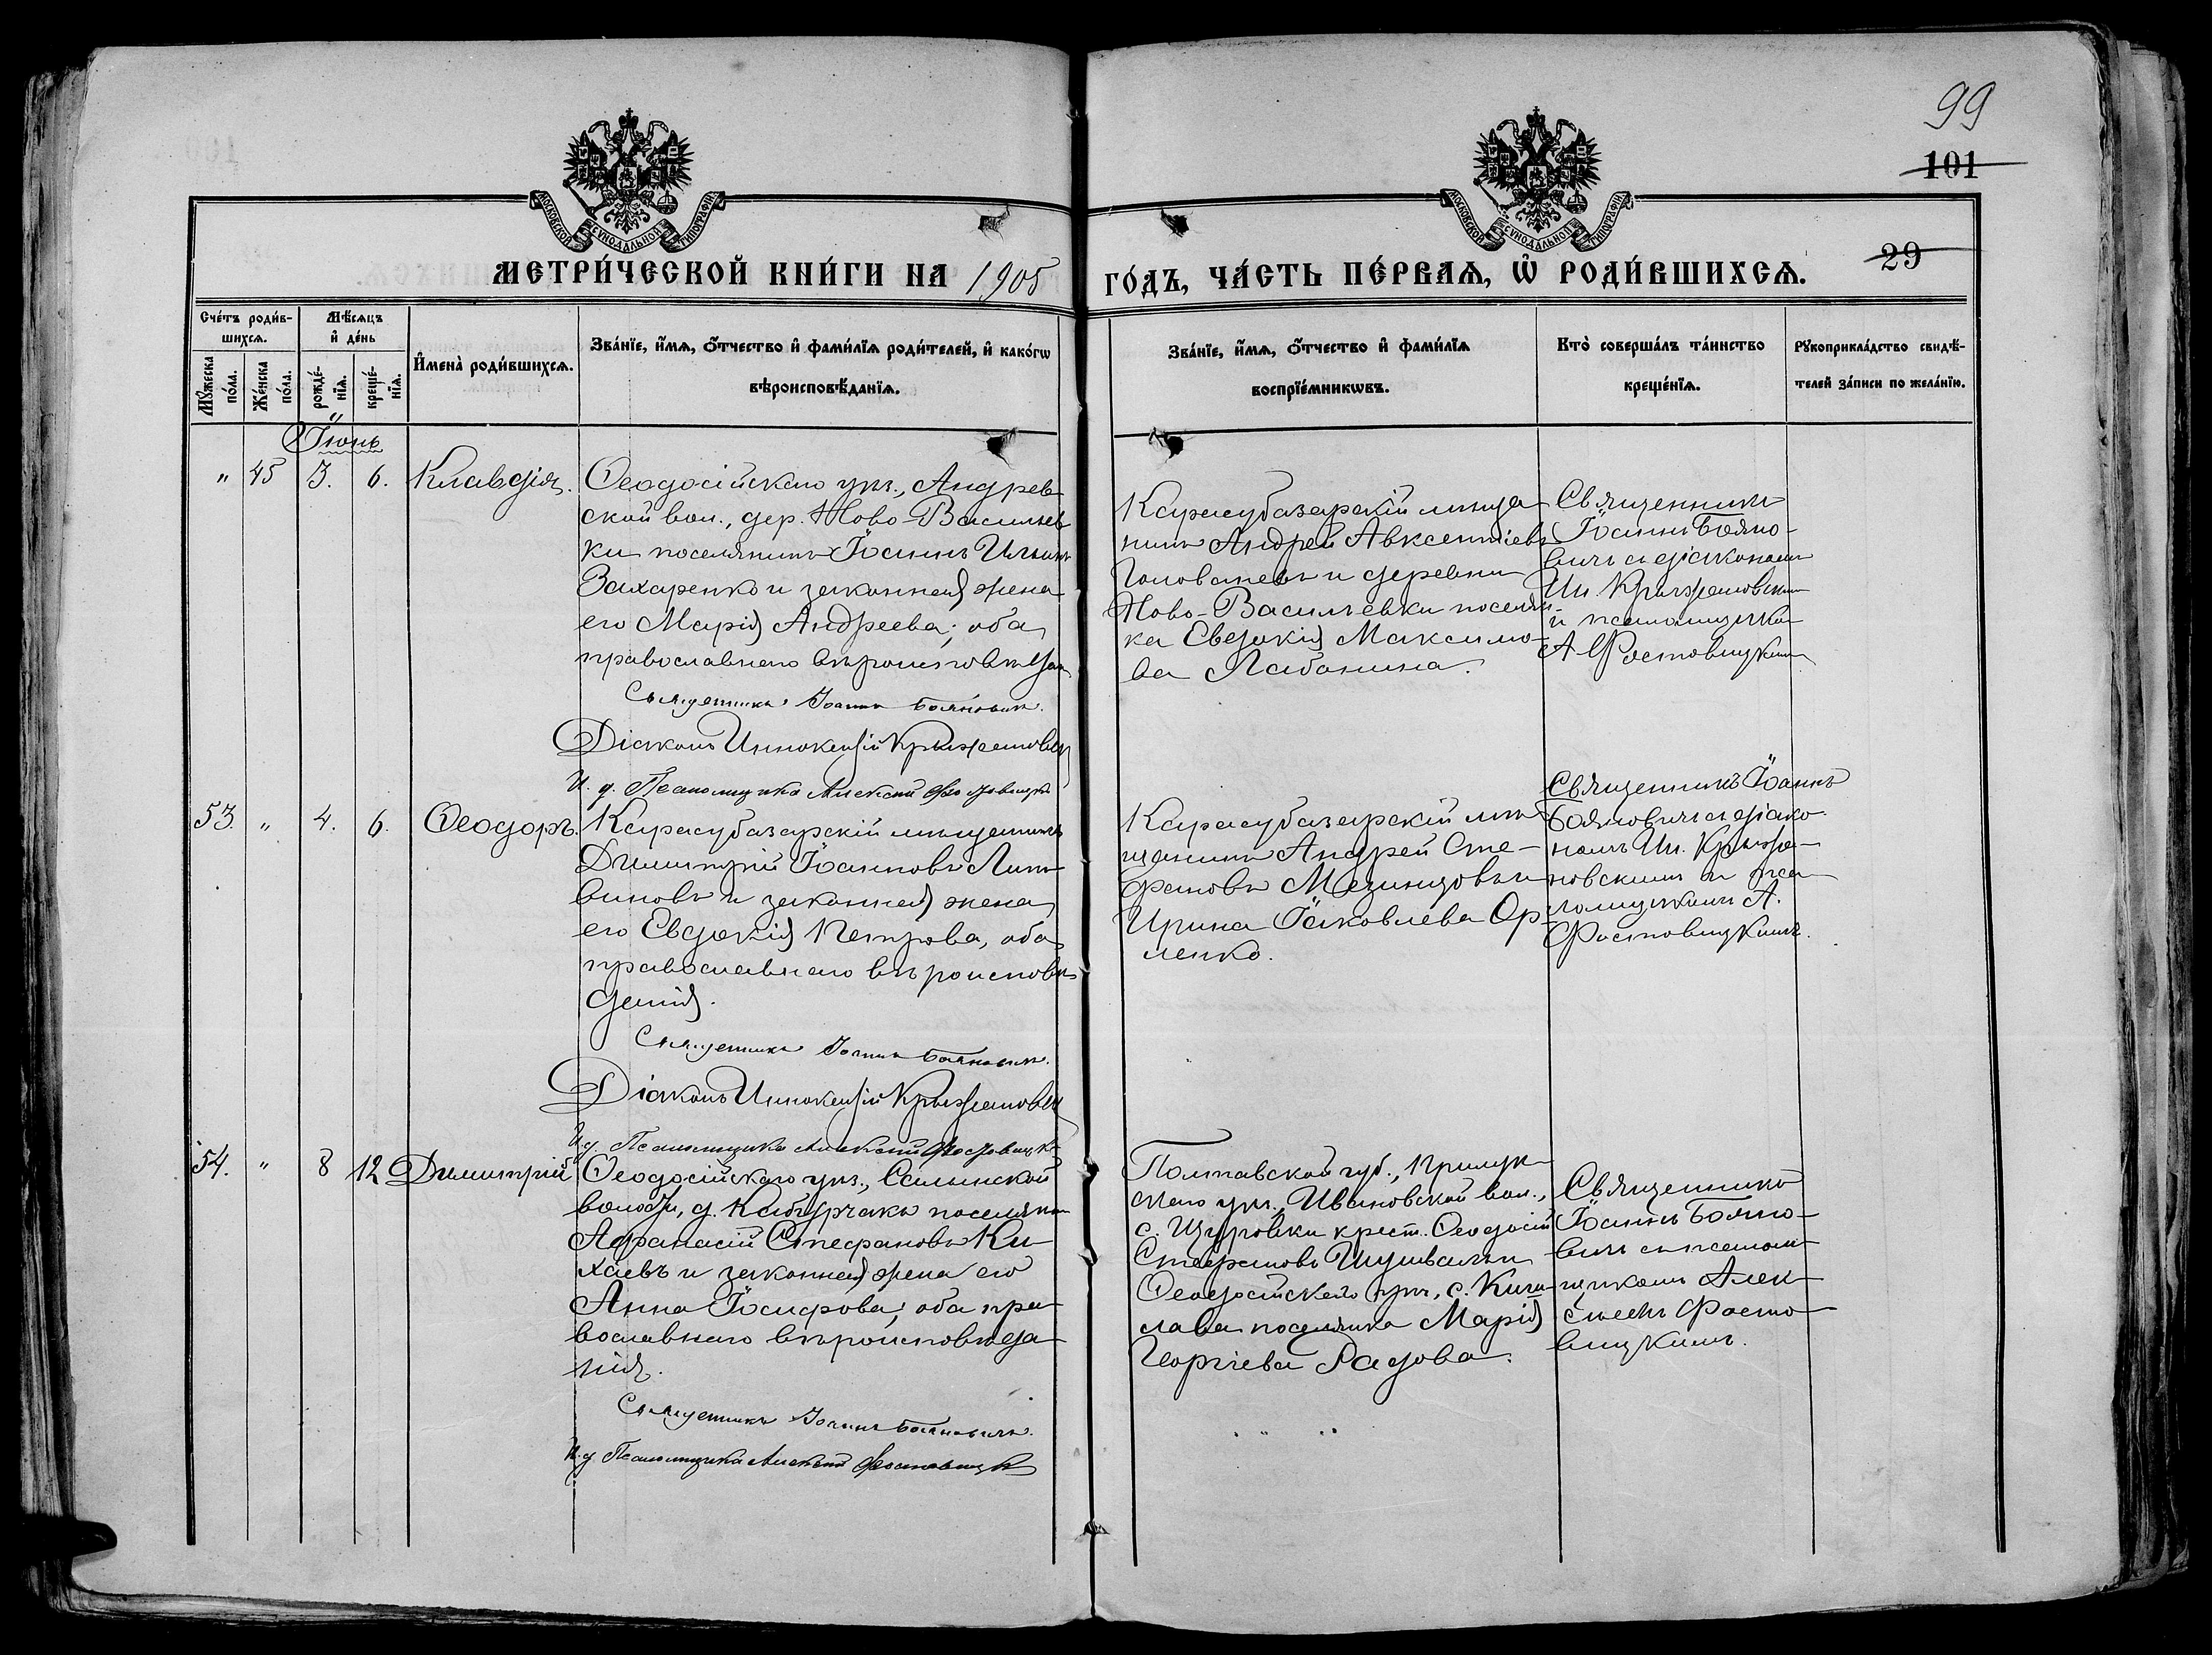 99
101
29
МОСКОВСКОЙ СУНОДАЛЬНОЙ ТИПОГРАФІИ
МОСКОВСКОЙ СУНОДАЛЬНОЙ ТИПОГРАФІИ
МЕТРИ́ЧЕСКОЙ КНИ́ГИ НА 1905 ГО́ДЪ, ЧА́СТЬ ПЕ́РВАЯ, Ѽ РОДИ́ВШИХСЯ.
Сче́тъ роди́в-
шихся.
Мѣ́сяцъ
и҆ де́нь
Мꙋ́жеска по́ла.
Же́нска по́ла.
рожде́-
нїя.
креще́-
нїя.
И҆мена̀ роди́вшихся.
Зва́нїе, и҆́мя, ѻ҆́тчество и҆ фами́лїя роди́телей, и҆ како́гѡ
вѣроисповѣ́данїя.
Зва́нїе, и҆́мя, ѻ҆́тчество и҆ фами́лїя
воспрїе́мникѡвъ.
Кто̀ соверша́лъ та́инство
креще́нїя.
Рꙋкоприкла́дство свидѣ́-
телей за́писи по жела́нїю.
Іюнь
" 45 3. 6. Клавдія.
Ѳеодосійскаго уѣз., Андреев
ской вол., дер. Ново-Васильев
ки поселянинъ Іоаннъ Ильинъ
Захаренко и законная жена
его Марія Андреева; оба
православнаго вѣроисповѣдан
Священникъ Іоаннъ Бояновичъ.
Діаконъ Иннокентій Крыжановскі
И. д. Псаломщика Алексій Фостовицкі
Карасубазарскій мѣща
нинъ Андрей Авксентіевъ
Головачевъ и деревни
Ново-Васильевки поселян
ка Евдокія Максимо-
ва Лабонина.
Священникъ
Іоаннъ Бояно-
вичъ съ діакономъ
Ин. Крыжановским
и псаломщикомъ
А. Фостовицкимъ
53. " 4. 6. Ѳеодоръ.
Карасубазарскій мѣщанинъ
Димитрій Іоанновъ Лит
виновъ и законная жена
его Евдокія Петрова, оба
православнаго вѣроисповѣ
данія.
Священникъ Іоаннъ Бояновичъ.
Діаконъ Иннокентій Крыжановскі
И. д. Псаломщика Алексій Фостовицкі
Карасубазарскій мѣ
щанинъ Андрей Сте-
фановъ Мезинцовъ и
Ирина Іаковлева Ор-
ленко.
Священникъ Іоаннъ
Бояновичъ съ діако-
номъ Ин. Крыжа-
новскимъ и пса
ломщикомъ А.
Фостовицкимъ.
54. " 8 12 Димитрій
Ѳеодосійскаго уѣз., Салынской
волости, д. Кабурчакъ поселянинъ
Афанасій Стефановъ Ки
хаевъ и законная жена его
Анна Іосифова; оба пра
вославнаго вѣроисповѣда
нія.
Священникъ Іоаннъ Бояновичъ.
И. д. Псаломщика Алексій Фостовицкі
Полтавской губ., Прилук
скаго уѣз., Ивановской вол.,
с. Щуровки крест. Ѳеодосій
Стефановъ Шушваль и
Ѳеодосійскаго уѣз., с. Киш-
лава поселянка Марія
Георгіева Радова.
Священникъ
Іоаннъ Бояно-
вичъ съ псалом
щикомъ Алек-
сѣемъ Фосто-
вицкимъ.